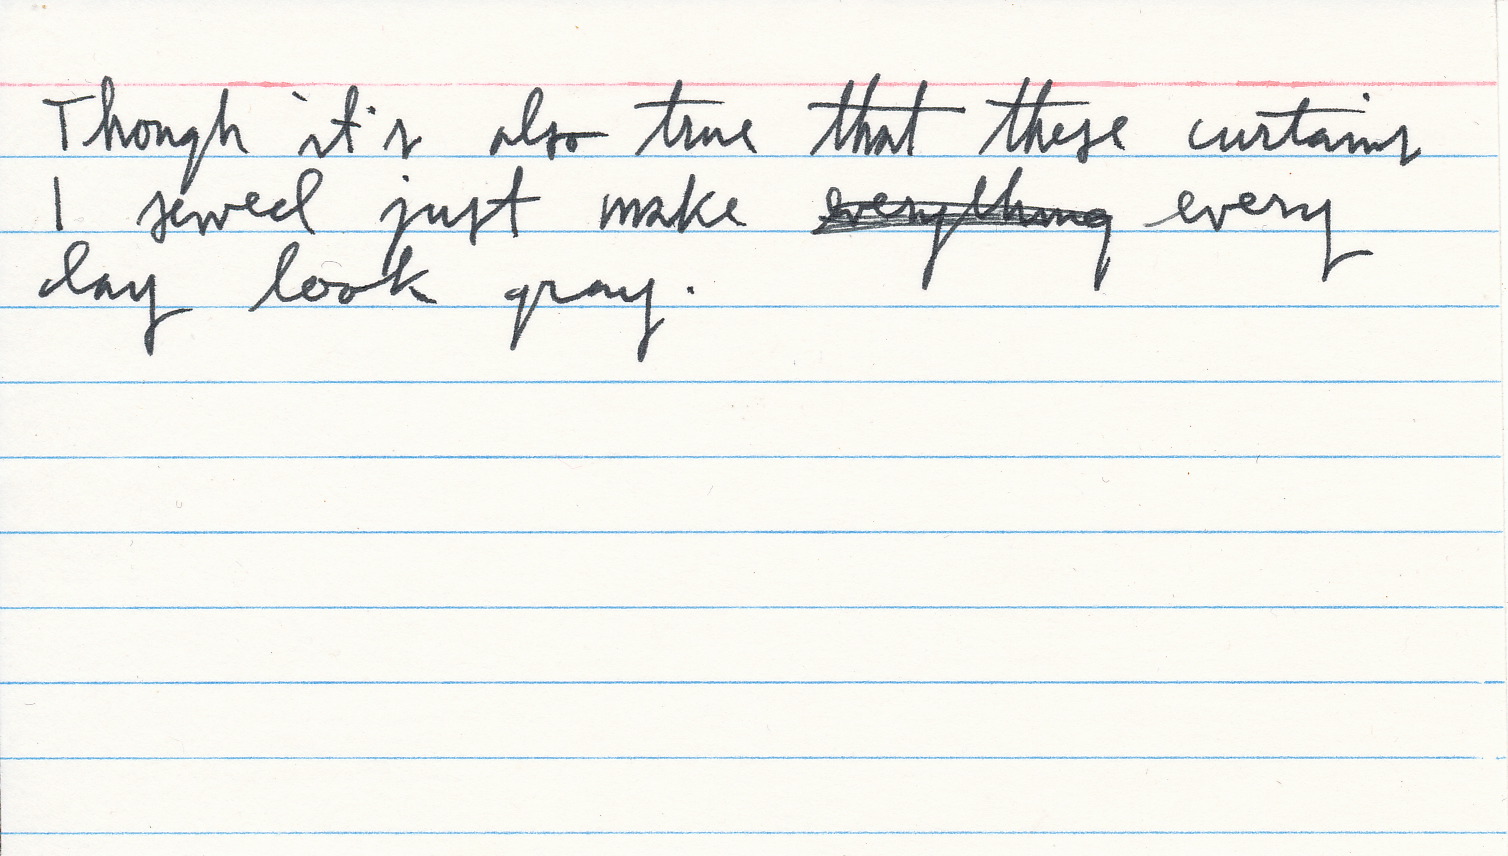 Though it's also true that these curtains
I sewed just make everything every
day look gray.